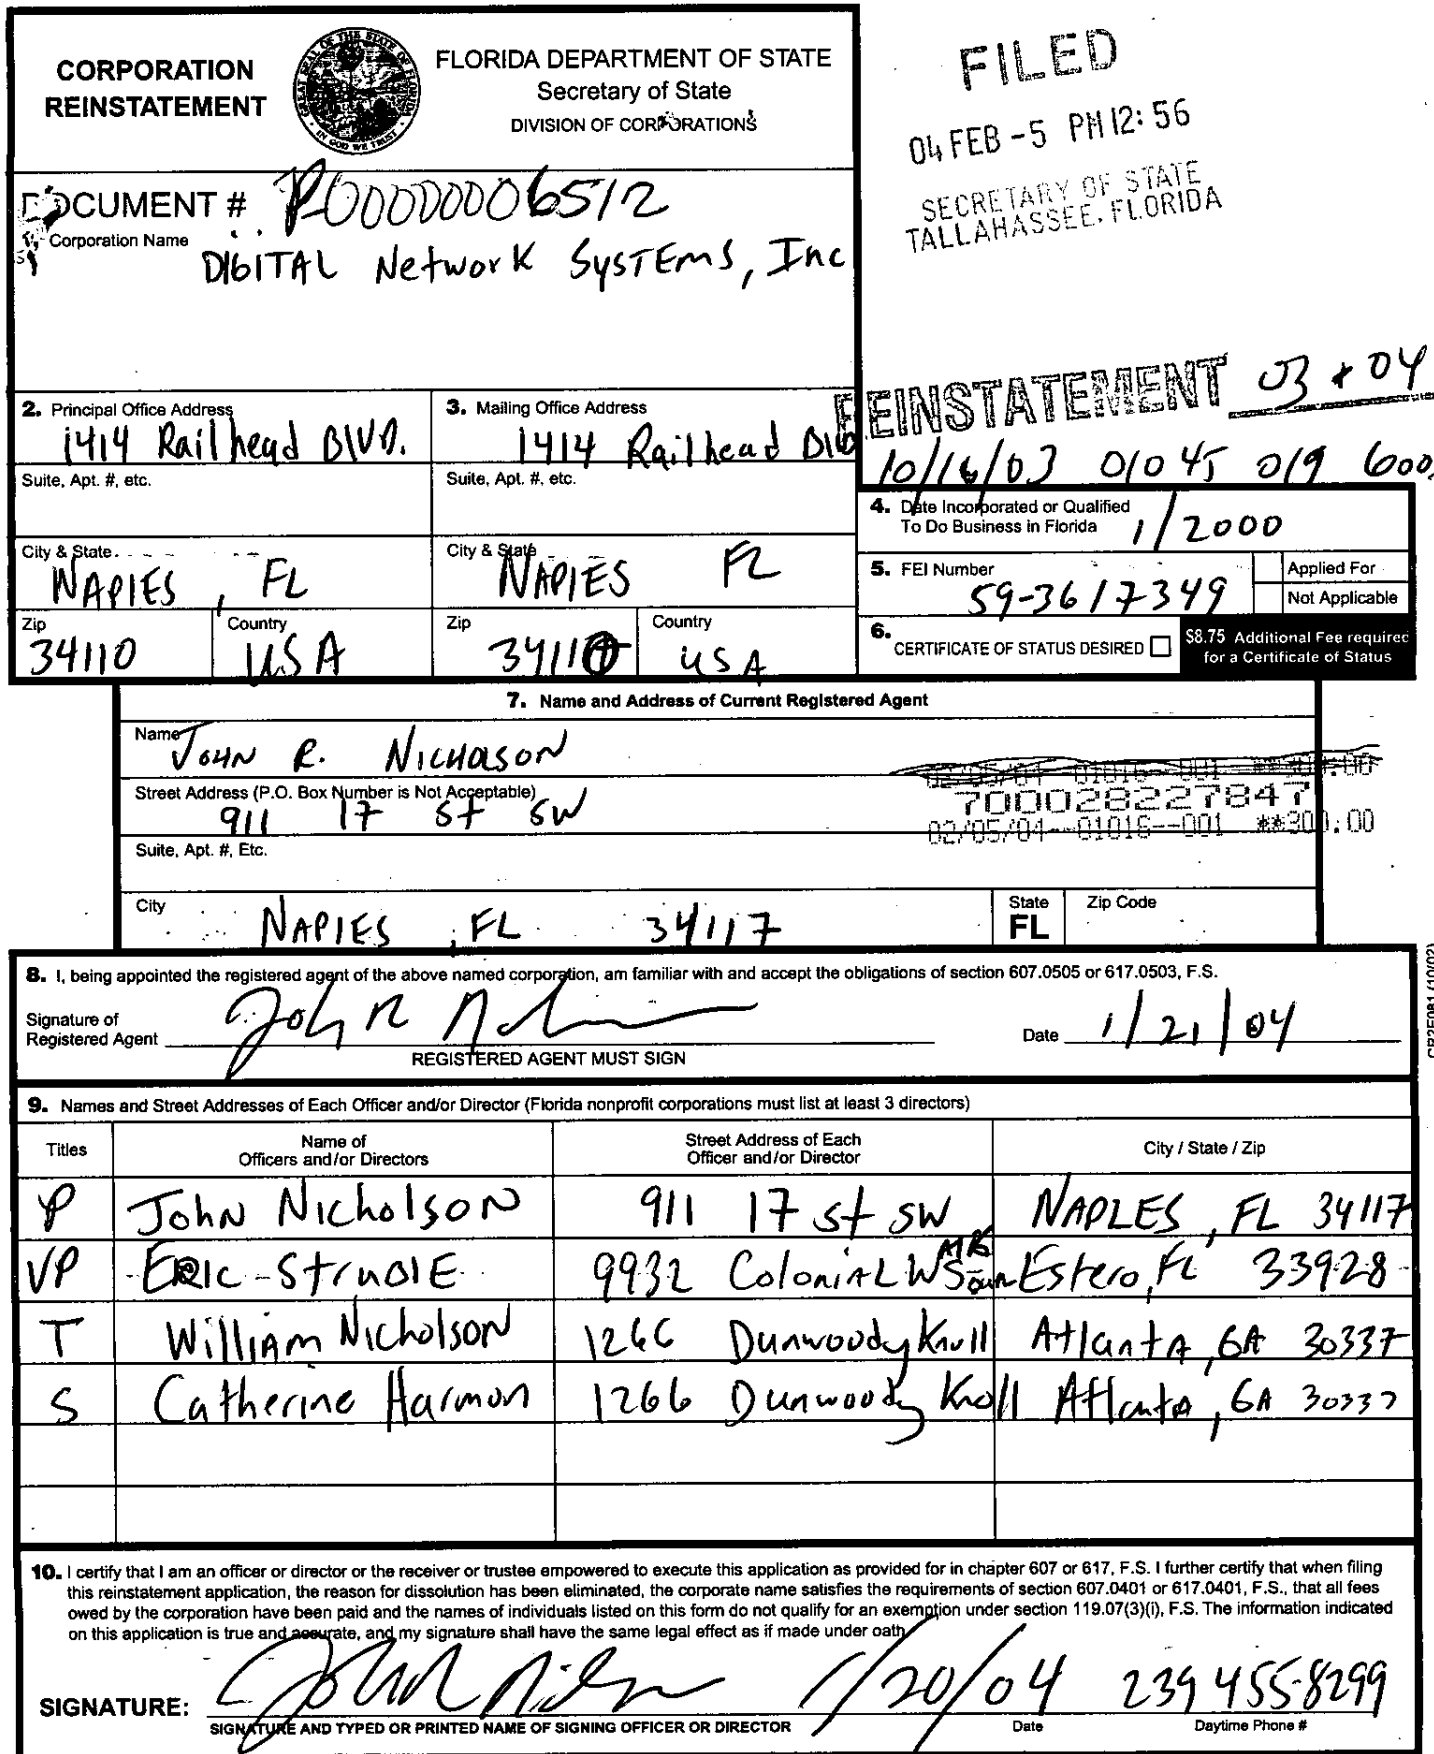 CORPORATION
REINSTATEMENT
FLORIDA DEPARTMENT OF STATE
Secretary of State
DIVISION OF CORPORATIONS
FILED
04 FEB -5 PM 12: 56
SECRETARY OF STATE
TALLAHASSEE, FLORIDA
DOCUMENT # P00000006512
Corporation Name
DIGITAL Network SYSTEMS, Inc
REINSTATEMENT 03 + 04
10/16/03 01045 019 600.
2. Principal Office Address
1414 Railhead BLVD.
Suite, Apt. #, etc.
City & State
NAPlES, FL
Zip
34110
Country
USA
3. Mailing Office Address
1414 Railhead
Suite, Apt. #, etc.
City & State
NAPlES FL
Zip
34110
Country
USA
4. Date Incorporated or Qualified
To Do Business in Florida 1/2000
5. FEI Number
59-3617349
Applied For
Not Applicable
6. CERTIFICATE OF STATUS DESIRED
$8.75 Additional Fee required
for a Certificate of Status
7. Name and Address of Current Registered Agent
Name
JOHN R. NICHOLSON
Street Address (P.O. Box Number is Not Acceptable)
911 17 St SW
700028227847
02/05/04--01016--001 **300.00
Suite, Apt. #, Etc.
City
NAPlES, FL 34117
State
FL
Zip Code
8. I, being appointed the registered agent of the above named corporation, am familiar with and accept the obligations of section 607.0505 or 617.0503, F.S.
Signature of
Registered Agent
REGISTERED AGENT MUST SIGN
Date 1/21/04
CR2E081 (10/02)
9. Names and Street Addresses of Each Officer and/or Director (Florida nonprofit corporations must list at least 3 directors)
Titles
Name of
Officers and/or Directors
Street Address of Each
Officer and/or Director
City / State / Zip
P John Nicholson 911 17 St SW NAPLES, FL 34117
VP ERIC StrublE 9932 Colonial Estero, FL 33928
T William Nicholson 1266 Dunwoody Knoll Atlanta, GA 30337
S Catherine Harmon 1266 Dunwoody Knoll Atlanta, GA 30337
10. I certify that I am an officer or director or the receiver or trustee empowered to execute this application as provided for in chapter 607 or 617, F.S. I further certify that when filing
this reinstatement application, the reason for dissolution has been eliminated, the corporate name satisfies the requirements of section 607.0401 or 617.0401, F.S., that all fees
owed by the corporation have been paid and the names of individuals listed on this form do not qualify for an exemption under section 119.07(3)(i), F.S. The information indicated
on this application is true and accurate, and my signature shall have the same legal effect as if made under oath
SIGNATURE: 1/20/04 239 455-8299
SIGNATURE AND TYPED OR PRINTED NAME OF SIGNING OFFICER OR DIRECTOR
Date
Daytime Phone #